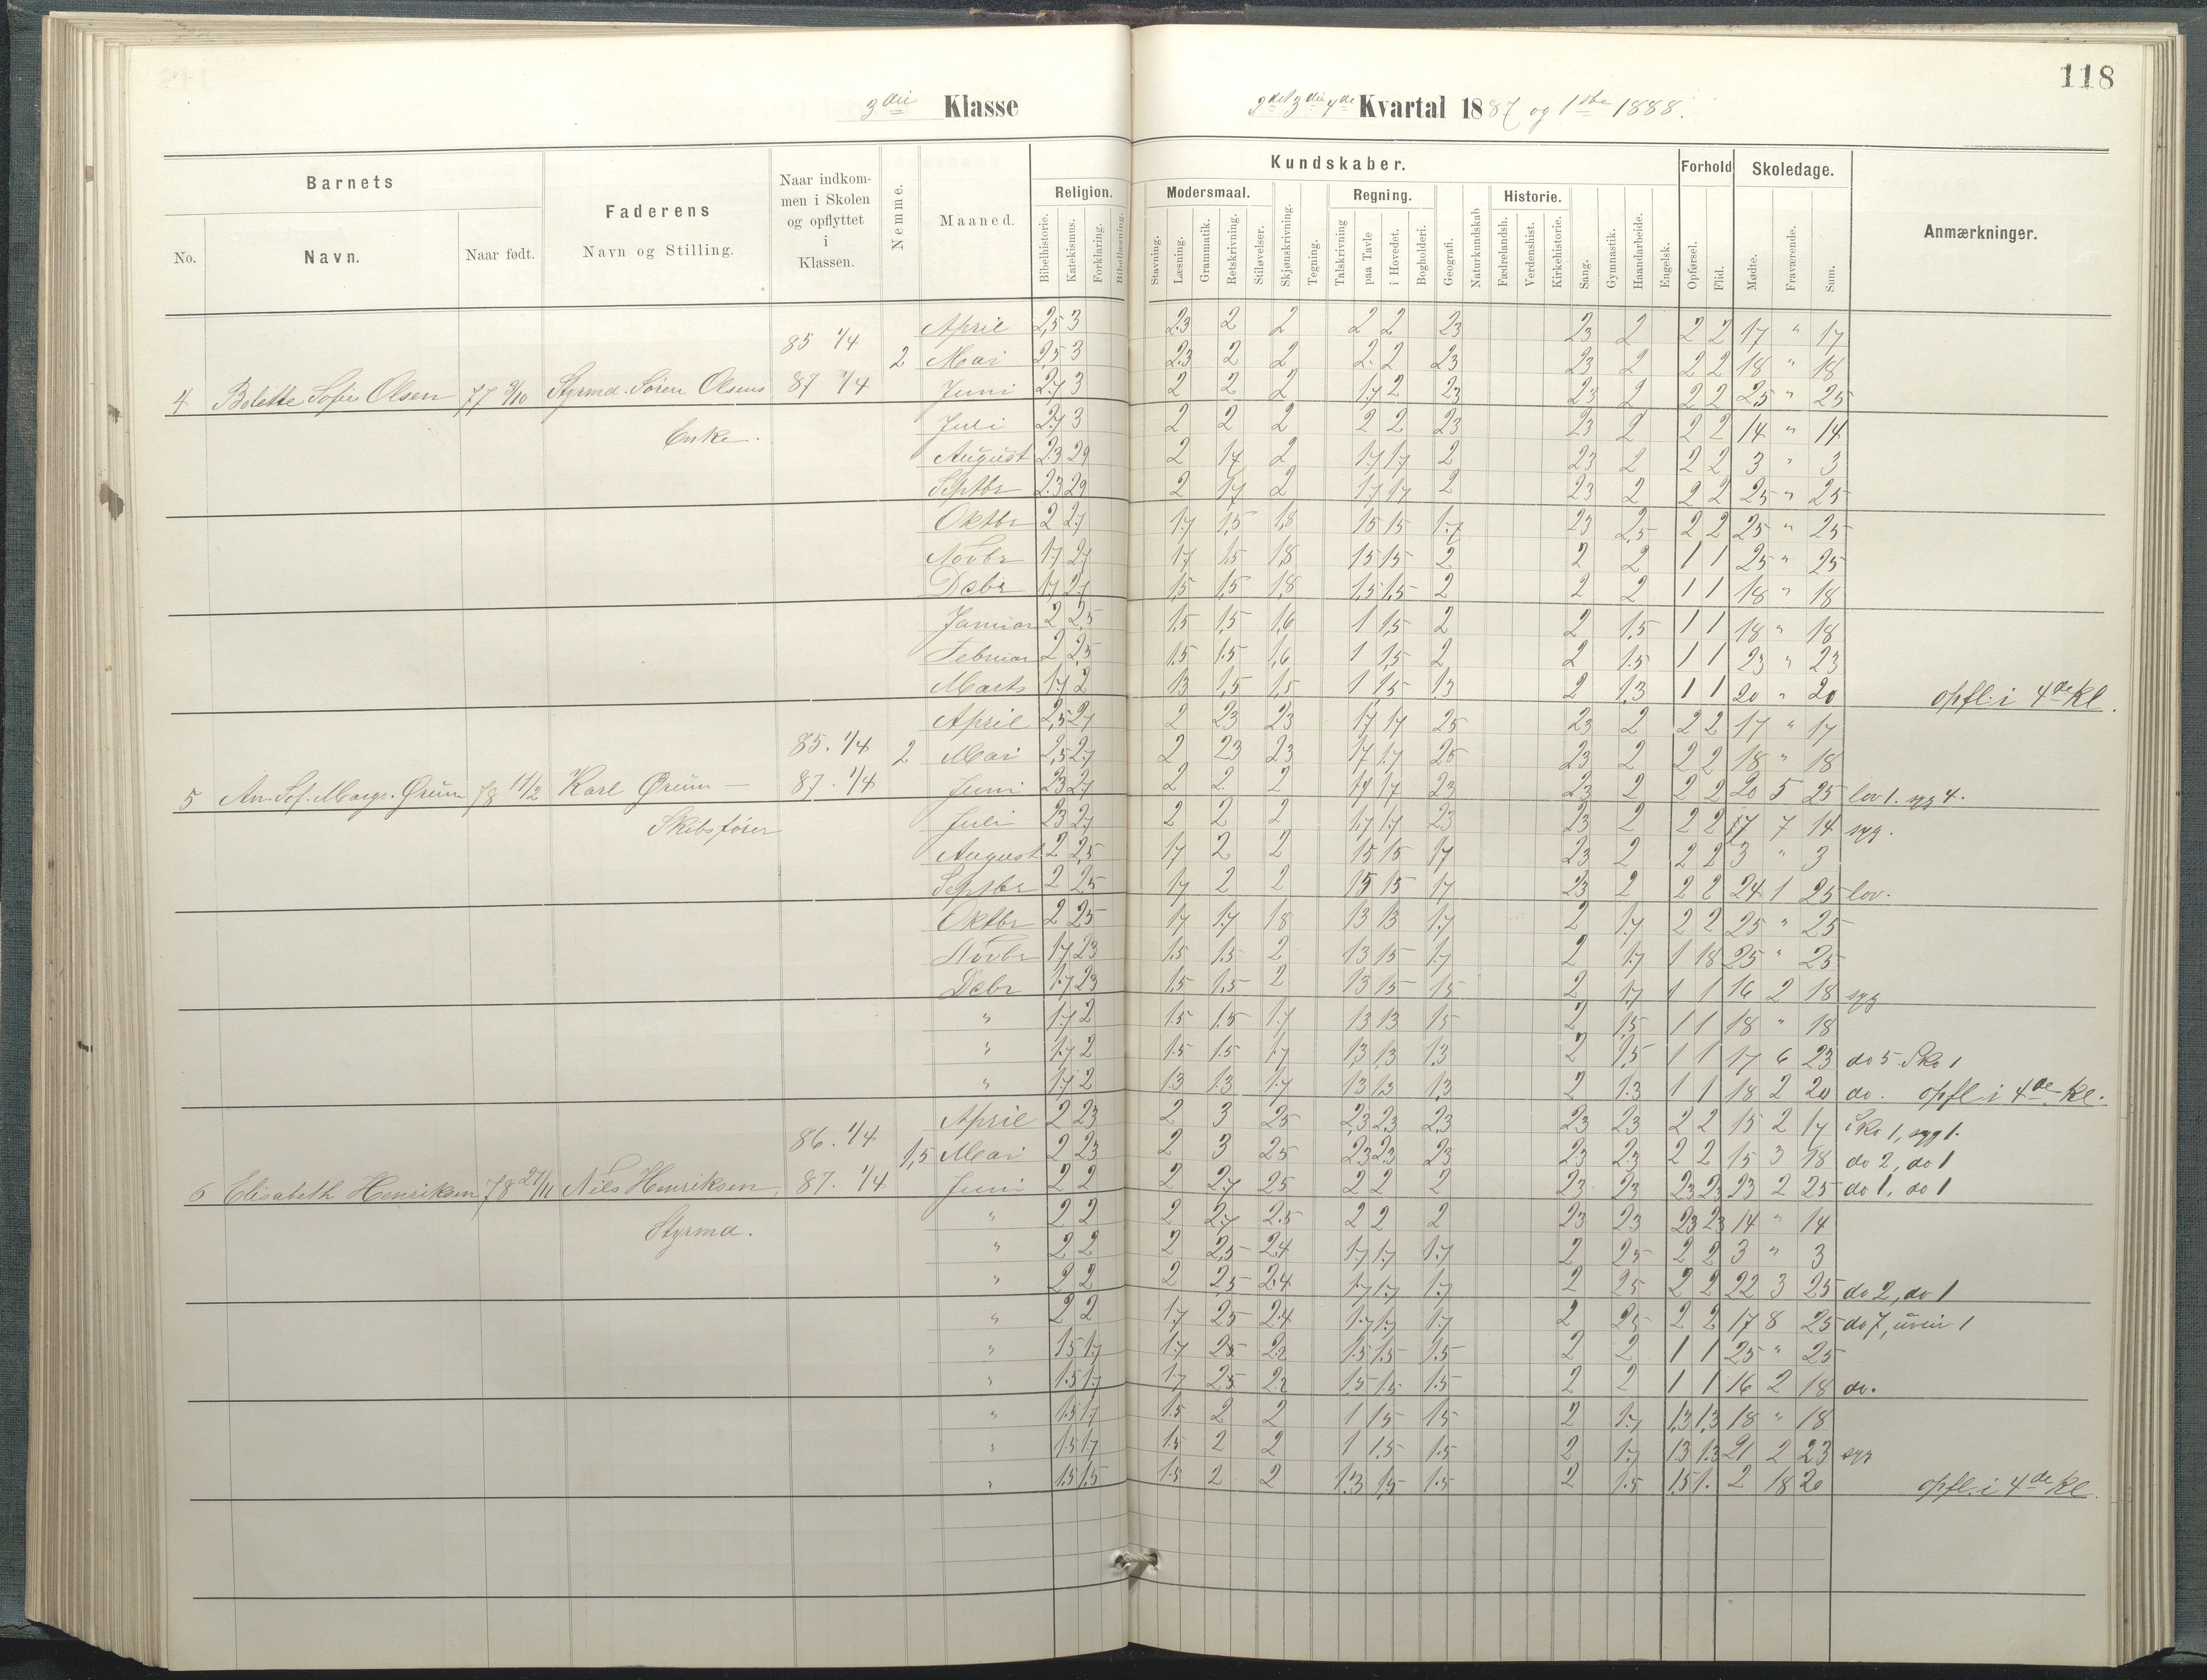 118
3die Klasse 2det 3die 4de Kvartal 1887 og 1ste 1888.
Barnets Faderens Naar indkom- Nemme. Maaned. Kundskaber. Forhold Skoledage. Anmærkninger.
men i Skolen Religion. Modersmaal. Regning. Historie.
og opflyttet
i
No. Navn. Naar født. Navn og Stilling. Klassen.
Bibelhistorie. Katekismus. Forklaring. Bibellæsning. Stavning. Læsning. Grammatik. Retskrivning. Stiløvelser. Skjønskrivning. Tegning. Talskrivning paa Tavle i Hovedet. Bogholderi. Geografi. Naturkundskab Fædrelandsh. Verdenshist. Kirkehistorie. Sang. Gymnastik. Haandarbeide. Engelsk. Opførsel. Flid. Mødte. Fraværende. Sum.
85 1/4 April 2,5 3 2.3 2 2 2 2 23 23 2 2 2 17 " 17
2 Mai 2,5 3 2.3 2 2 2 2 23 23 2 2 2 18 " 18
4 Bolette Sofie Olsen 77 3/10 Styrmd. Søren Olsens 87 1/4 Juni 2.7 3 2 2 2 1.7 2 23 23 2 2 2 25 " 25
Enke. Juli 2.7 3 2 2 2 2 2 23 23 2 2 2 14 " 14
August 2.3 29 2 17 2 1.7 1.7 2 23 2 2 2 3 " 3
Septbr 2.3 29 2 17 2 1.7 17 2 23 2 2 2 25 " 25
Oktbr 2 2.7 1.7 1,5 1,8 15 15 1.7 23 2,5 2 2 25 " 25
Novbr 1.7 2.7 17 1.5 1,8 15 15 2 2 2 1 1 25 " 25
Debr 1.7 2.7 1,5 1,5 1,8 1,5 1.5 2 2 2 1 1 18 " 18
Januar 2 2,5 1,5 1,5 1,6 1 1,5 2 2 1,5 1 1 18 " 18
Februar 2 2,5 1.5 1.5 1,6 1 1,5 2 2 1.5 1 1 23 " 23
Marts 1.7 2 13 1,5 1,5 1 1.5 1.3 2 1,3 1 1 20 " 20 opfl. i 4de Kl.
April 2,5 2.7 2 23 23 1.7 17 25 23 2 2 2 17 " 17
85. 1/4 2 Mai 2,5 2.7 2 23 23 17 1.7 25 23 2 2 2 18 " 18
5 An. Sof. Margr. Ørum 78 11/2 Karl Ørum — 87. 1/4 Juni 23 2.7 2 2 2 17 17 23 23 2 2 2 20 5 25 lov 1. syg 4.
Skibsfører Juli 23 2.7 2 2 2 1.7 1.7 23 23 2 2 2 7 14 syg.
August 2 2,5 17 2 2 15 15 17 23 2 2 2 3 " 3
Septbr 2 2.5 17 2 2 15 15 17 23 2 2 2 24 1 25 lov.
Oktbr 2 25 17 1.7 18 13 13 1.7 2 1.7 2 2 25 " 25
Novbr 1.7 23 1.5 1.5 2 13 15 1.7 2 1.7 1 18 25 " 25
Debr 1.7 23 1.5 1,5 2 13 15 15 2 1.7 1 1 16 2 18 syg
" 1.7 2 1.5 1.5 1.7 13 13 15 2 1,5 1 1 18 " 18
" 1.7 2 1.5 1.5 1.7 1,3 1,3 1.3 2 1,5 1 1 17 6 23 do 5. Sko 1
" 1.7 2 13 1.3 1.7 13 1.3 1,3 2 1.3 1 1 18 2 20 do. opfl. i 4de Kl.
April 2 23 2 3 25 2,3 2,3 2,3 23 23 2 2 15 2 17 Sko 1, syg 1.
86. 1/4 1,5 Mai 2 23 2 3 25 23 2.3 23 23 2.3 2 2 15 3 18 do 2, do 1
6 Elisabeth Henriksen 78 27/11 Nils Henriksen, 87. 1/4 Juni 2 2 2 2.7 25 2 2 2 23 23 23 23 23 2 25 do 1, do 1
Styrmd. " 2 2 2 2.7 2.5 2 2 2 23 23 23 23 14 " 14
" 2 2 2 2,5 2.4 1.7 1.7 1.7 2 25 2 2 3 " 3
" 2 2 2 2,5 2.4 1.7 1.7 1.7 2 25 2 2 22 3 25 do 2, do 1
" 2 2 1.7 25 24 1.7 1.7 1.7 2 25 2 2 17 8 25 do 7, uveir 1
" 15 1.7 17 25 22 1.5 1.5 1.5 2 2 1 1 25 " 25
" 1.5 1.7 1.7 25 22 1.5 1.5 1.5 2 2 1 1 16 2 18 do.
" 1.5 1.7 1.5 2 2 1 15 15 2 1.7 1,3 1,3 18 " 18
" 1.5 1.7 1.5 2 2 1 1.5 1.5 2 1.7 1.3 1.3 21 2 23 syg
" 1.5 1.5 1.5 2 2 1.3 1,5 1.5 2 1.5 1.5 1. 2 18 20 opfl. i 4de Kl.